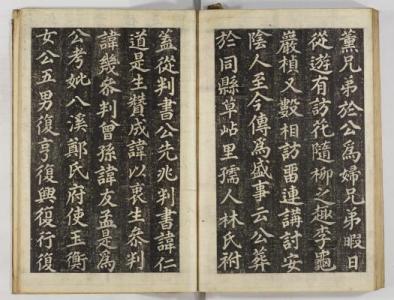 薰兄弟於公爲婦兄弟暇日
從遊有訪花隨柳之趣李龜
巖楨又數相訪留連講討安
陰人至今傳爲盛事云公葬
於同縣草岾里孺人林氏祔
蓋從判書公先兆判書諱仁
道是生贊成諱以衷生叅判
諱幾叅判曾孫諱友孟是爲
公考妣八溪鄭氏府使玉衡
女公五男復亨復興復行復